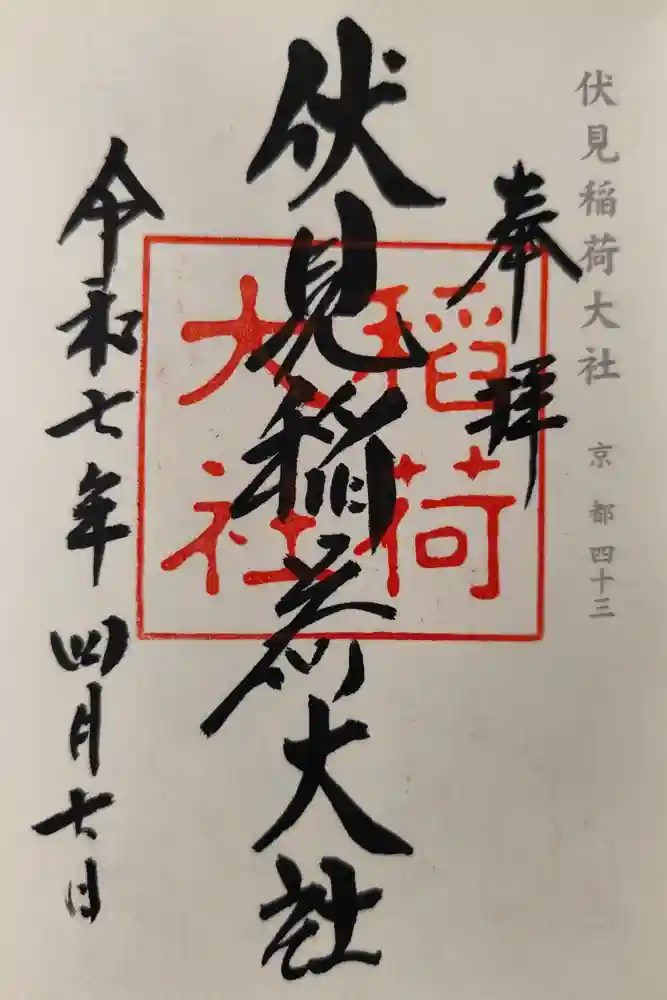 伏見稲荷大社 京都四十三
奉拝
伏見稲荷大社
稲荷
大社
令和七年四月七日